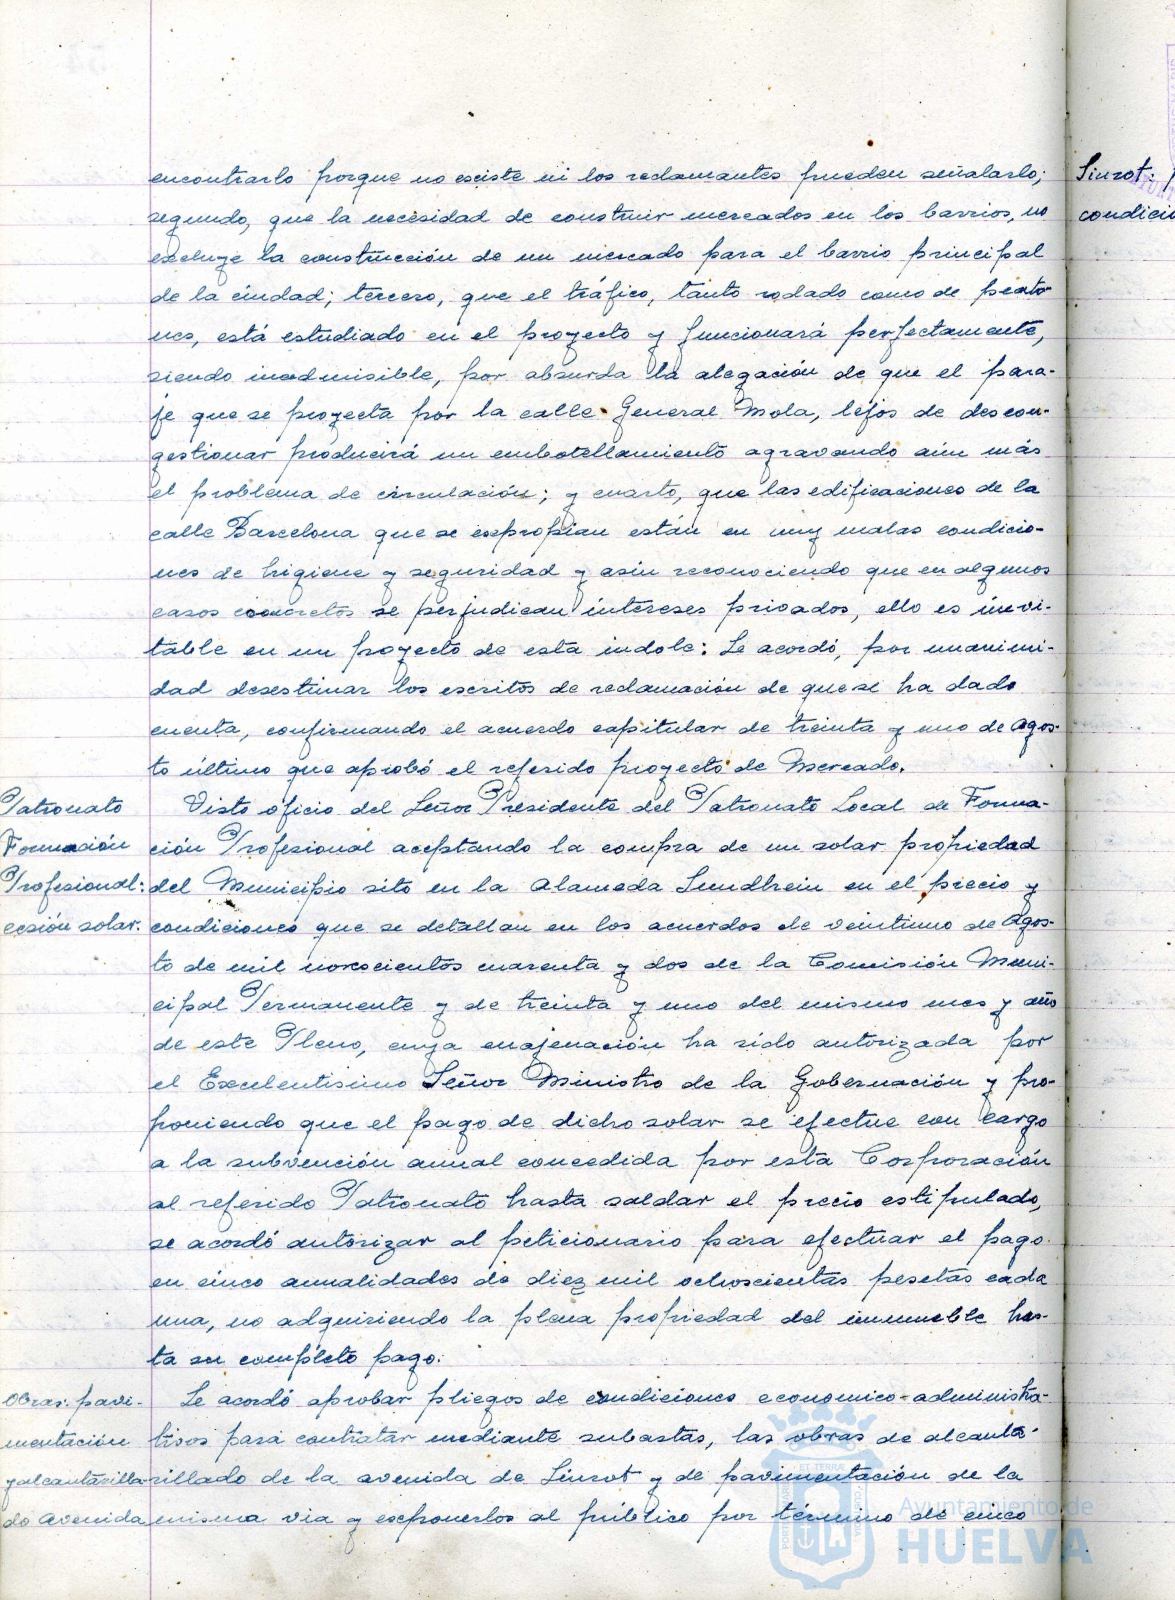 encontrarlo porque no existe ni los reclamantes pueden señalarlo;
segundo, que la necesidad de construir mercados en los barrios, no
excluye la construcción de un mercado para el barrio principal
de la ciudad; tercero, que el tráfico, tanto rodado como de peato-
nes, está estudiado en el proyecto y funcionará perfectamente,
siendo inadmisible, por absurda la alegación de que el para-
je que se proyecta por la calle General Mola, lejos de descon-
gestionar producirá un embotellamiento agravando aún más
el problema de circulación; y cuarto, que las edificaciones de la
calle Barcelona que se expropian están en muy malas condicio-
nes de higiene y seguridad y aún reconociendo que en algunos
casos concretos se perjudican intereses privados, ello es inevi-
table en un proyecto de esta indole: Se acordó, por unanimi-
dad desestimar los escritos de reclamación de que se ha dado
cuenta, confirmando el acuerdo capitular de treinta y uno de Agos-
to último que aprobó el referido proyecto de Mercado.
Patronato
Formación
Profesional:
cesión solar.
Visto oficio del Señor Presidente del Patronato Local de Forma-
ción Profesional aceptando la compra de un solar propiedad
del Municipio sito en la Alameda Sundhein en el precio y
condiciones que se detallan en los acuerdos de veintiuno de Agos-
to de mil novecientos cuarenta y dos de la Comisión Muni-
cipal Permanente y de treinta y uno del mismo mes y año
de este Pleno, cuya enajenación ha sido autorizada por
el Excelentisimo Señor Ministro de la Gobernación y pro-
poniendo que el pago de dicho solar se efectue con cargo
a la subvención anual concedida por esta Corporación
al referido Patronato hasta saldar el precio estipulado,
se acordó autorizar al peticionario para efectuar el pago
en cinco anualidades de diez mil ochocientas pesetas cada
una, no adquiriendo la plena propiedad del inmueble has-
ta su completo pago.
Obras: pavi-
mentación
y alcantarilla-
do Avenida
Se acordó aprobar pliegos de condiciones economico-administra-
tivos para contratar mediante subastas, las obras de alcanta-
rillado de la avenida de Siurot y de pavimentación de la
misma via y exponerlos al público por término de cinco
Siurot:
condicio
Ayuntamiento de
HUELVA